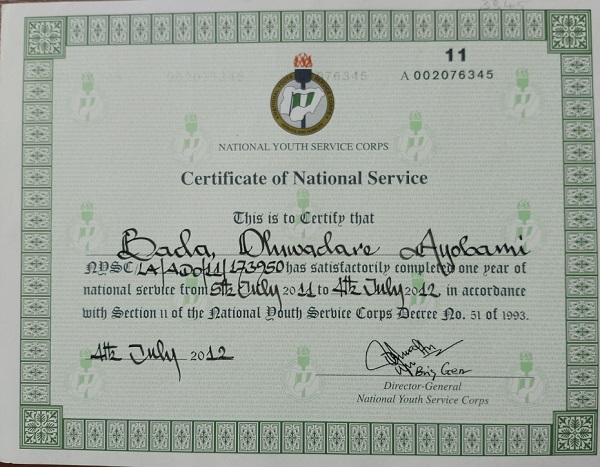 11
A 002076345
NATIONAL YOUTH SERVICE CORPS
Certificate of National Service
This is to Certify that
Bada, Oluwadare Ayobami
NYSC/LA/ADO/11/173950 has satisfactorily completed one year of
national service from 5th July 2011 to 4th July 2012, in accordance
with Section 11 of the National Youth Service Corps Decree No. 51 of 1993.
4th July 2012
Brig Gen
Director-General
National Youth Service Corps